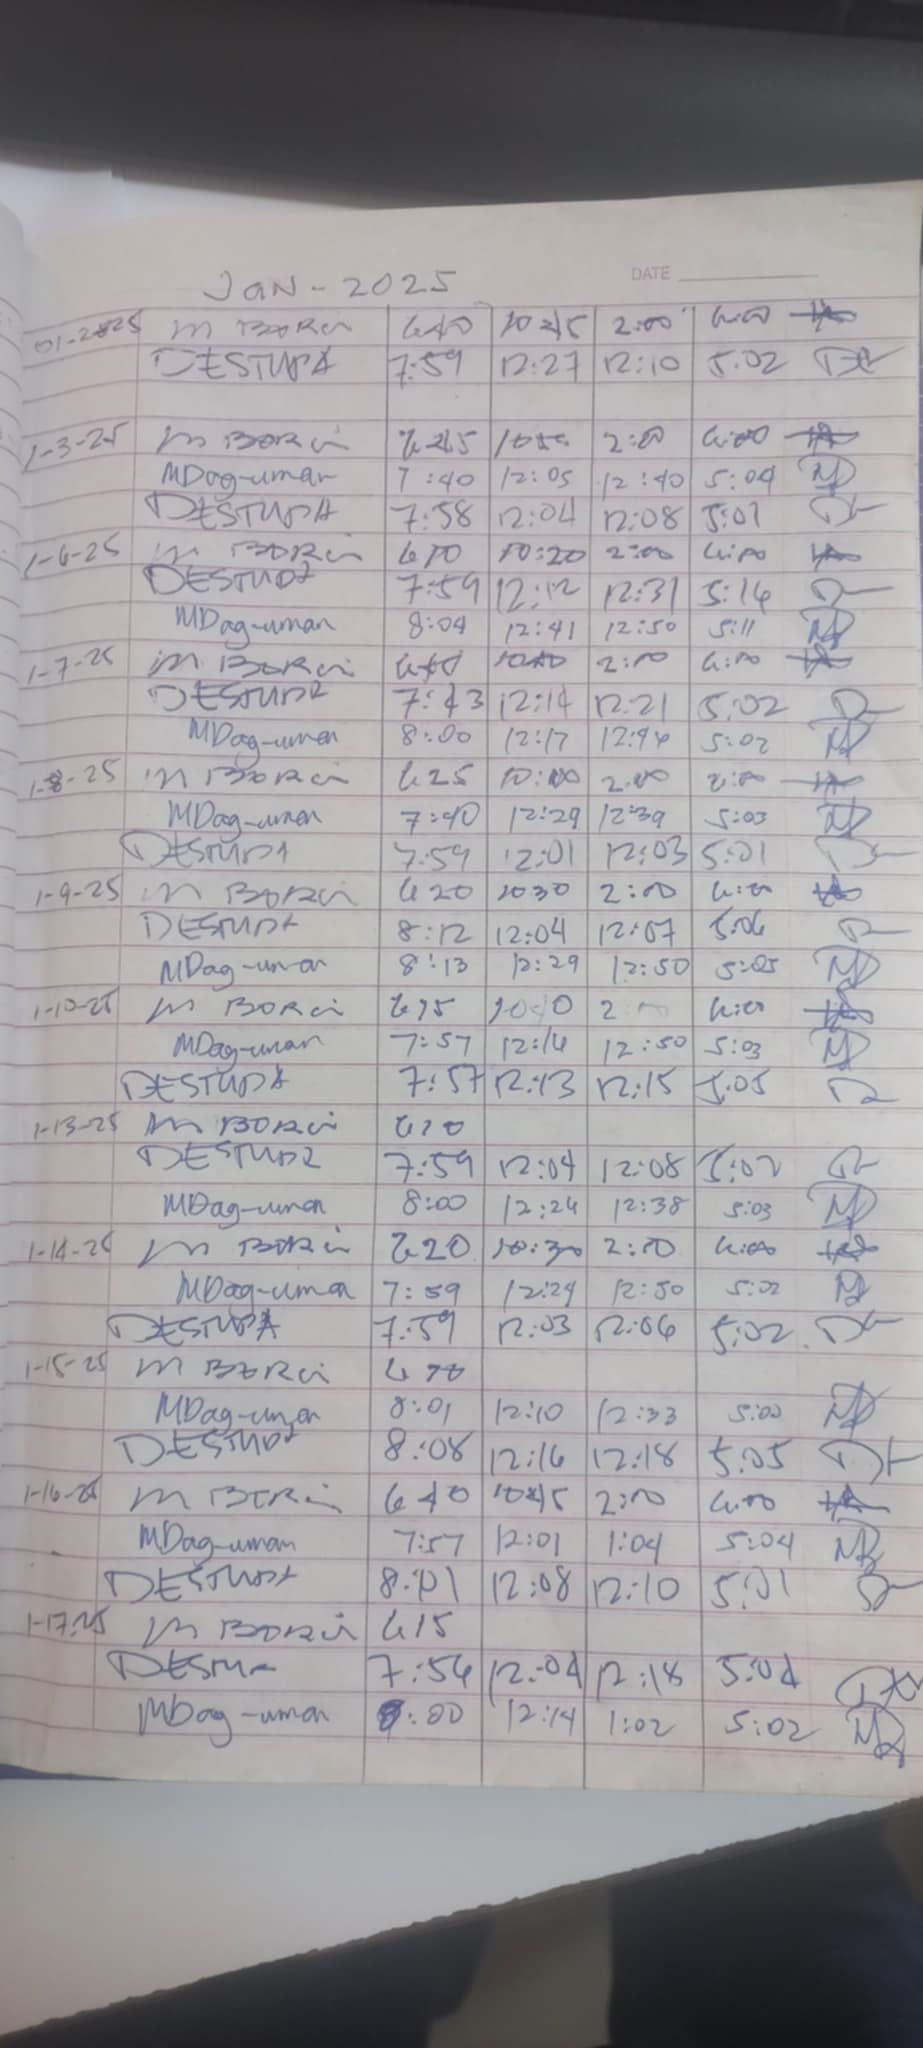 JAN - 2025
DATE
01-2-25 M BORCI 6:40 10:45 2:00 4:00
DESTUPA 7:59 12:27 12:10 5:02
1-3-25 M BORCI 10:50 2:00 4:00
MDag-uman 7:40 12:05 12:40 5:04
DESTUPA 7:58 12:04 12:08 5:01
1-6-25 M BORCI 6:10 10:20 2:00 4:00
DESTUPA 7:59 12:12 12:31 5:14
MDag-uman 8:04 12:41 12:50 5:11
1-7-25 M BORCI 2:00 4:00
DESTUPA 7:43 12:14 12:21 5:02
MDag-uman 8:00 12:17 12:44 5:02
1-8-25 M BORCI 6:25 10:00 2:00
MDag-uman 7:40 12:29 12:39 5:03
DESTUPA 7:59 12:01 12:03 5:01
1-9-25 M BORCI 6:20 10:30 2:00 4:00
DESTUPA 8:12 12:04 12:07 5:06
MDag-uman 8:13 12:29 12:50 5:05
1-10-25 M BORCI 6:15 10:10 2:00 4:00
MDag-uman 7:57 12:16 12:50 5:03
DESTUPA 7:57 12:13 12:15 5:05
1-13-25 M BORCI 6:20
DESTUPA 7:59 12:04 12:08 5:02
MDag-uman 8:00 12:24 12:38 5:03
1-14-25 M BORCI 6:20 10:30 2:00 4:00
MDag-uman 7:59 12:29 12:50 5:02
DESTUPA 7:59 12:03 12:06 5:02
1-15-25 M BORCI
MDag-uman 8:01 12:10 12:33 5:00
DESTUPA 8:08 12:16 12:18 5:05
1-16-25 M BORCI 6:40 10:45 2:00 4:00
MDag-uman 7:57 12:01 1:04 5:04
DESTUPA 8:01 12:08 12:10 5:01
1-17-25 M BORCI 6:15
DESTUPA 7:56 12:04 12:18 5:04
MDag-uman 8:00 12:14 1:02 5:02